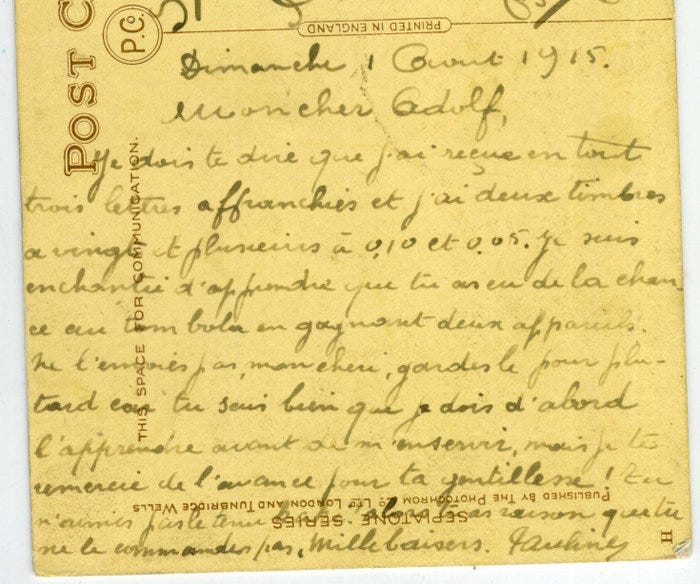 POST C
P.C.
PRINTED IN ENGLAND
THIS SPACE FOR COMMUNICATION.
Dimanche 1 Aout 1915.
Mon cher Adolf,
Je dois te dire que j'ai reçue en tout
trois lettres affranchies et j'ai deux timbres
a vingt et plusieurs à 0,10 et 0,05. Je suis
enchantée d'apprendre que tu as eu de la chan-
ce au tombola en gagnant deux appareils.
Ne l'envoies pas, mon cheri, gardes le pour plu-
tard car tu sais bien que je dois d'abord
l'apprendre avant de m'en servir, mais je te
remercie de l'avance pour ta gentillesse! Tu
n'aimes pas le tenu alors tu as raison que tu
ne le commandes pas, Mille baisers. Pauline
PUBLISHED BY THE PHOTOCHROM CO LTD LONDON AND TUNBRIDGE WELLS
SEPIATONE SERIES
H